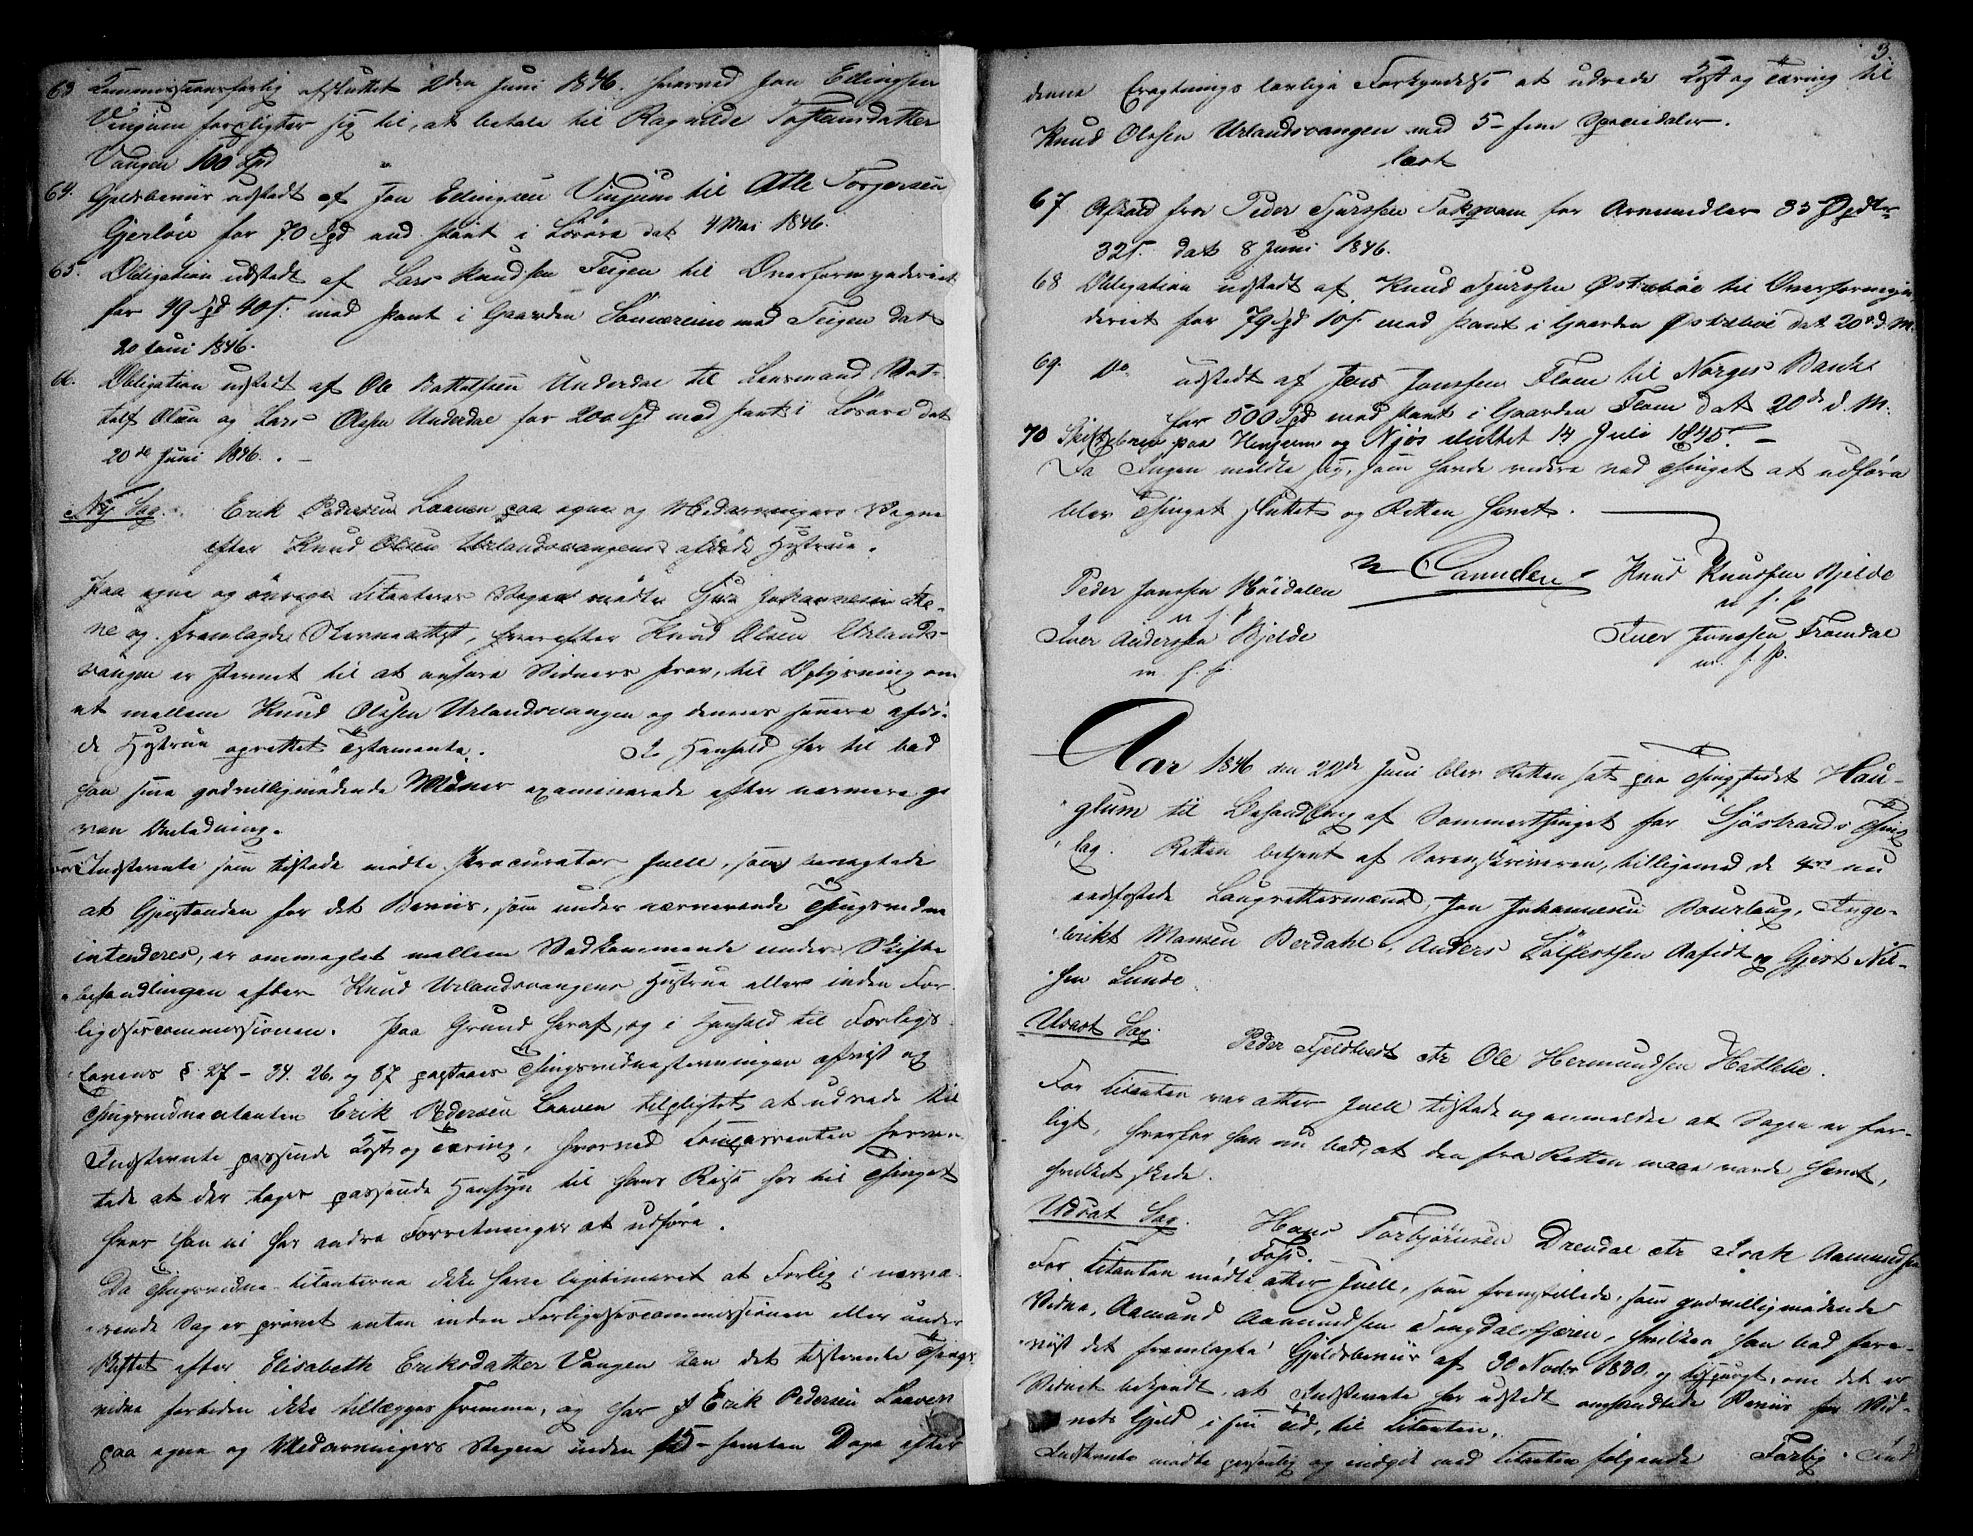 63 Commissionsforlig afsluttet 2den Juni 1846. hvorved Jon Ellingsen
Vinjum forpligter sig til, at betale til Ragnilde Tostensdatter
Vangen 100 Spd
64. Gjeldsbeviis udstedt af Jon Ellingsen Vinjum til Atle Torgersen
Gjerløw for 70 Spd med Pant i Løsøre dat 4 Mai 1846.
65. Obligation udstedt af Lars Knudsen Teigen til Overformynderiet
for 49 Spd 40 s. med Pant i Gaarden med Teigen dat
20 Juni 1846.
66. Obligation udstedt af Ole Bottolfsen Underdal til Lensmand Bot-
tolf Olsen og Lars Olsen Underdal for 200 Spd med Pant i Løsøre dat
20de Juni 1846. -
Ny Sag. Erik Pedersen Laaven paa egne og Medarvingers Vegne
efter Knud Olsen Urlandsvangens afdøde Hustrue.
Paa egne og øvrige Citanters Vegne mødte Johannesen
og fremlagde Skevneattest, hvorefter Knud Olsen Urlands-
vangen er stevnet til at anhøre Vidners Prov, til Oplysning om
et mellem Knud Olsen Urlandsvangen og dennes senere afdø-
de Hustrue oprettet Testamente. I Henhold her til bad
han sine godvilligmødende Vidner examinerede efter nærmere gi
ven Anledning.
For Indstevnte som tilstede mødte Procurator Juell, som benegtede
at Gjenstanden for det Beviis, som under nærværende Thingsvidne
intenderes, er ommeglet mellem Vedkommende under Skifte
behandlingen efter Knud Urlandsvangens Hustrue eller inden For-
ligelsescommissionen. Paa Grund heraf, og i Henhold til Forligs
Lovens §. 27 - 34. 26. og 87 paastaaes Thingsvidnestevningen afvist og
Thingsvidnecitanten Erik Pedersen Laaven tilpligtet at udrede til
Indstevnte passende Kost og Tæring, hvorved Comparenten forven-
tede at der tages passende Hensyn til hans Reise her til Thinget
hvor han ei har andre Forretninger at udføre.
Da Thingsvidne-Citanterne ikke have legitimeret at Forlig i nærvæ-
rende Sag er prøvet enten inden Forligelsescommissionen eller under
Skiftet efter Elisabeth Eriksdatter Vangen kan det tilstevnte Things
vidne forinden ikke tillægges Fremme, og har Erik Pedersen Laaven
paa egne og Medarvingers Vegne inden 15 - femten Dage efter
3.
denne Eragtnings lovlige Forkyndelse at udrede Kost og Tæring til
Knud Olesen Urlandsvangen med 5 - fem Speciedaler.
læst
67 Afkald fra Peder Sjursen Tokqvam for Arvemidler 85 Spdlr
32 s. dat 8 Juni 1846.
68 Obligation udstedt af Knud Sjursen Østrebøe til Overformyn
deriet for 79 Spd 10 s. med Pant i Gaarden Østrebøe dat 20de d. M.
69. Do. udstedt af Jens Jonsen Flom til Norges Bank
for 500 Spd med Pant i Gaarden Flom dat 20de d. M.
70 Skiftebrev paa Henjum og Njøs sluttet 14 Juli 1845. -
Da Ingen meldte sig, som havde videre ved Thinget at udføre
blev Thinget sluttet og Retten hævet.
Peder Jonsen Høidalen Knud Knudsen Bjelde
m f. p m f. p
Iver Andersen Bjelde Iver Jonsen Fromdal
m. f. p m. f. p.
Aar 1846 den 22de Juni blev Retten sat paa Thingstedet Hau-
glum til Behandling af Sommerthinget for Sjøstrands Thing
lag. Retten betjent af Sorenskriveren, tilligemed de 4re nu
eedfæstede Laugrettesmænd Jon Johannesen Bourlaug, Inge-
brikt Monsen Berdahl, Anders Aafedt og Gjert Nil-
sen Lunde.
Udsat Sag. Peder Fjeldtvedt ctr Ole Hermundsen Hatlelie.
For Citanten var atter Juell tilstede og anmeldte at Sagen er for-
ligt, hvorfor han nu bad, at den fra Retten maae vorde hævet,
hvilket skede.
Udsat Sag. Hans Torbjørnsen Drevdal ctr Isak Aamundsen
Foss.
For Citanten mødte atter Juell, som fremstillede, som godvilligmødende
Vidne, Aamund Aamundsen Songdalsfjæren, hvilken han bad fore-
viist det fremlagte Gjeldsbeviis af 30 Novbr 1830, og tilspurgt, om det er
Vidnet bekjendt, at Indstevnte har udstedt omhandlede Beviis for Vid-
nets Gjeld i sin Tid, til Citanten.
Indstevnte mødte personlig og indgik med Citanten følgende Forlig.